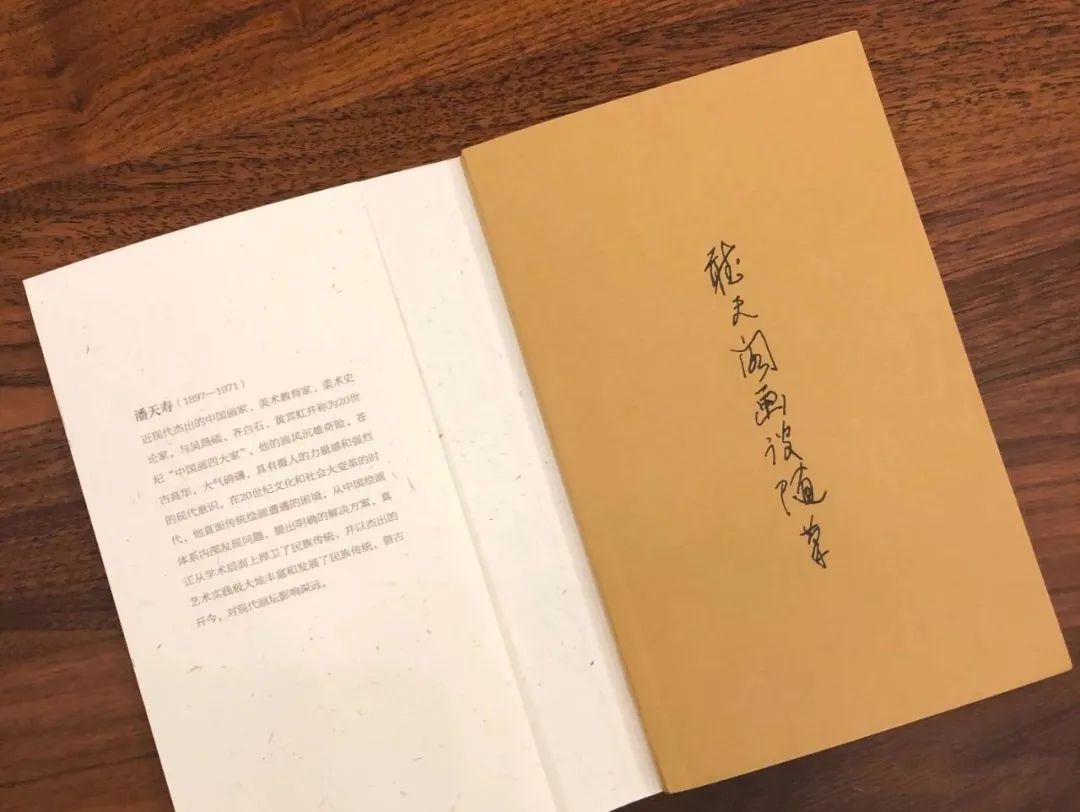 潘天寿（1897—1971）
近现代杰出的中国画家、美术教育家、美术史
论家，与吴昌硕、齐白石、黄宾虹并称为20世
纪“中国画四大家”。他的画风沉雄奇险，苍
古高华，大气磅礴，具有摄人的力量感和强烈
的现代意识。在20世纪文化和社会大变革的时
代，他直面传统绘画遭遇的困境，从中国绘画
体系内部发现问题，提出明确的解决方案，真
正从学术层面上捍卫了民族传统，并以杰出的
艺术实践极大地丰富和发展了民族传统，借古
开今，对现代画坛影响深远。
听天阁画谈随笔